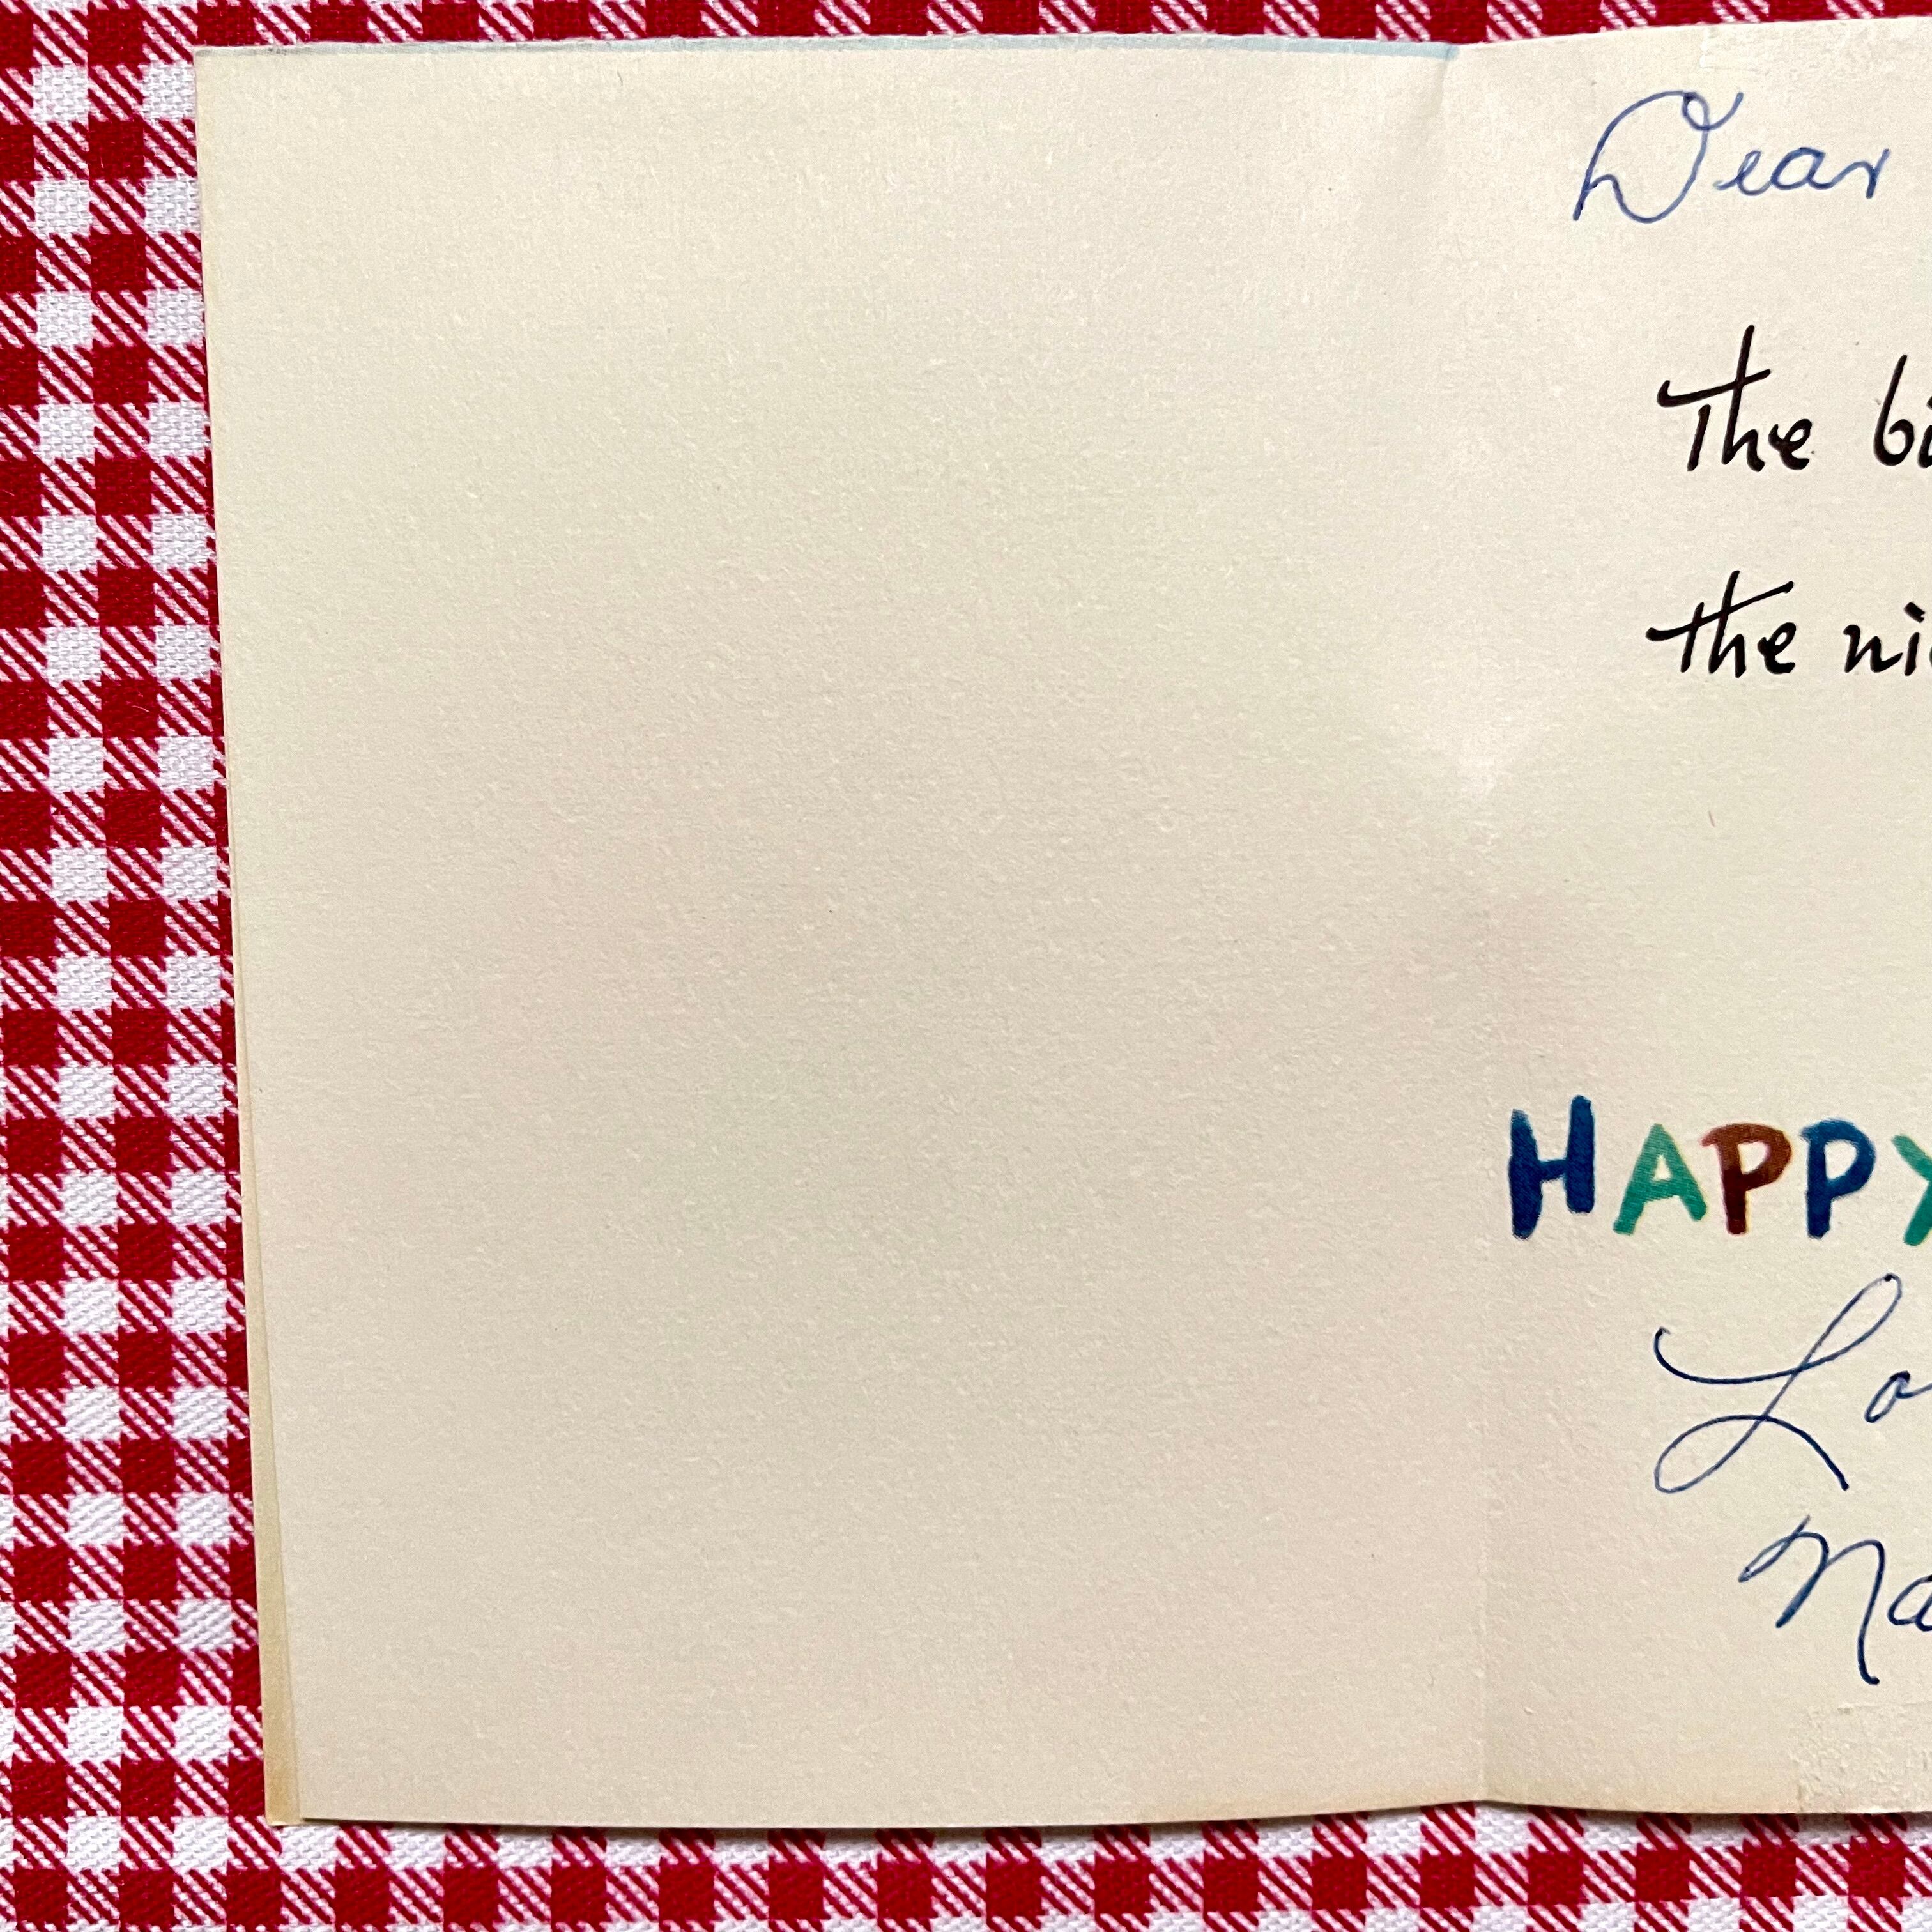 Dear
The bi
the ni
HAPPY
Lo
Na